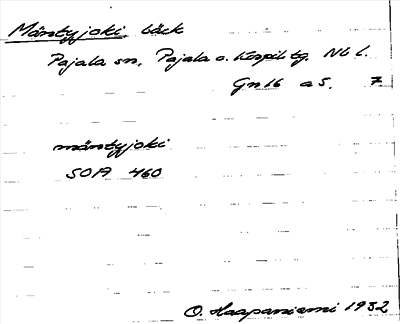 Mäntyjoki, bäck
Pajala sn, Pajala o. Korpil. tg. Nb l.
Gn 16 a 5. 7
mäntyjoki
SOA 460
O. Haapaniemi 1932